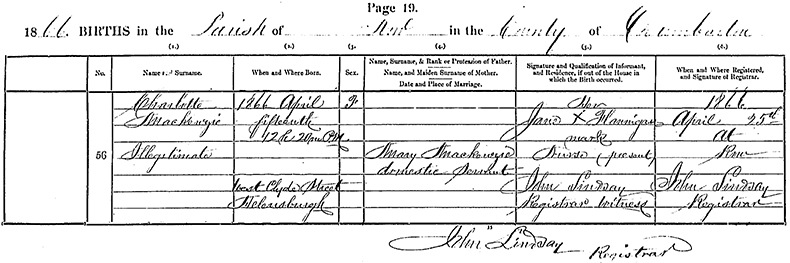 Page 19.
1866. BIRTHS in the Parish of Row in the County of Dumbarton
(1.) (2.) (3.) (4.) (5.) (6.)
No. Name and Surname. When and Where Born. Sex. Name, Surname, & Rank or Profession of Father. Name, and Maiden Surname of Mother. Date and Place of Marriage. Signature and Qualification of Informant, and Residence, if out of the House in which the Birth occurred. When and Where Registered, and Signature of Registrar.
Charlotte 1866 April F Her 1866
Mackenzie fifteenth Jane X Flannigan April 25th
12h 20m P.M. mark At
56 Illegitimate Mary Mackenzie Nurse (present) Row
domestic Servant
West Clyde Street John Lindsay John Lindsay
Helensburgh Registrar Witness Registrar
John Lindsay Registrar